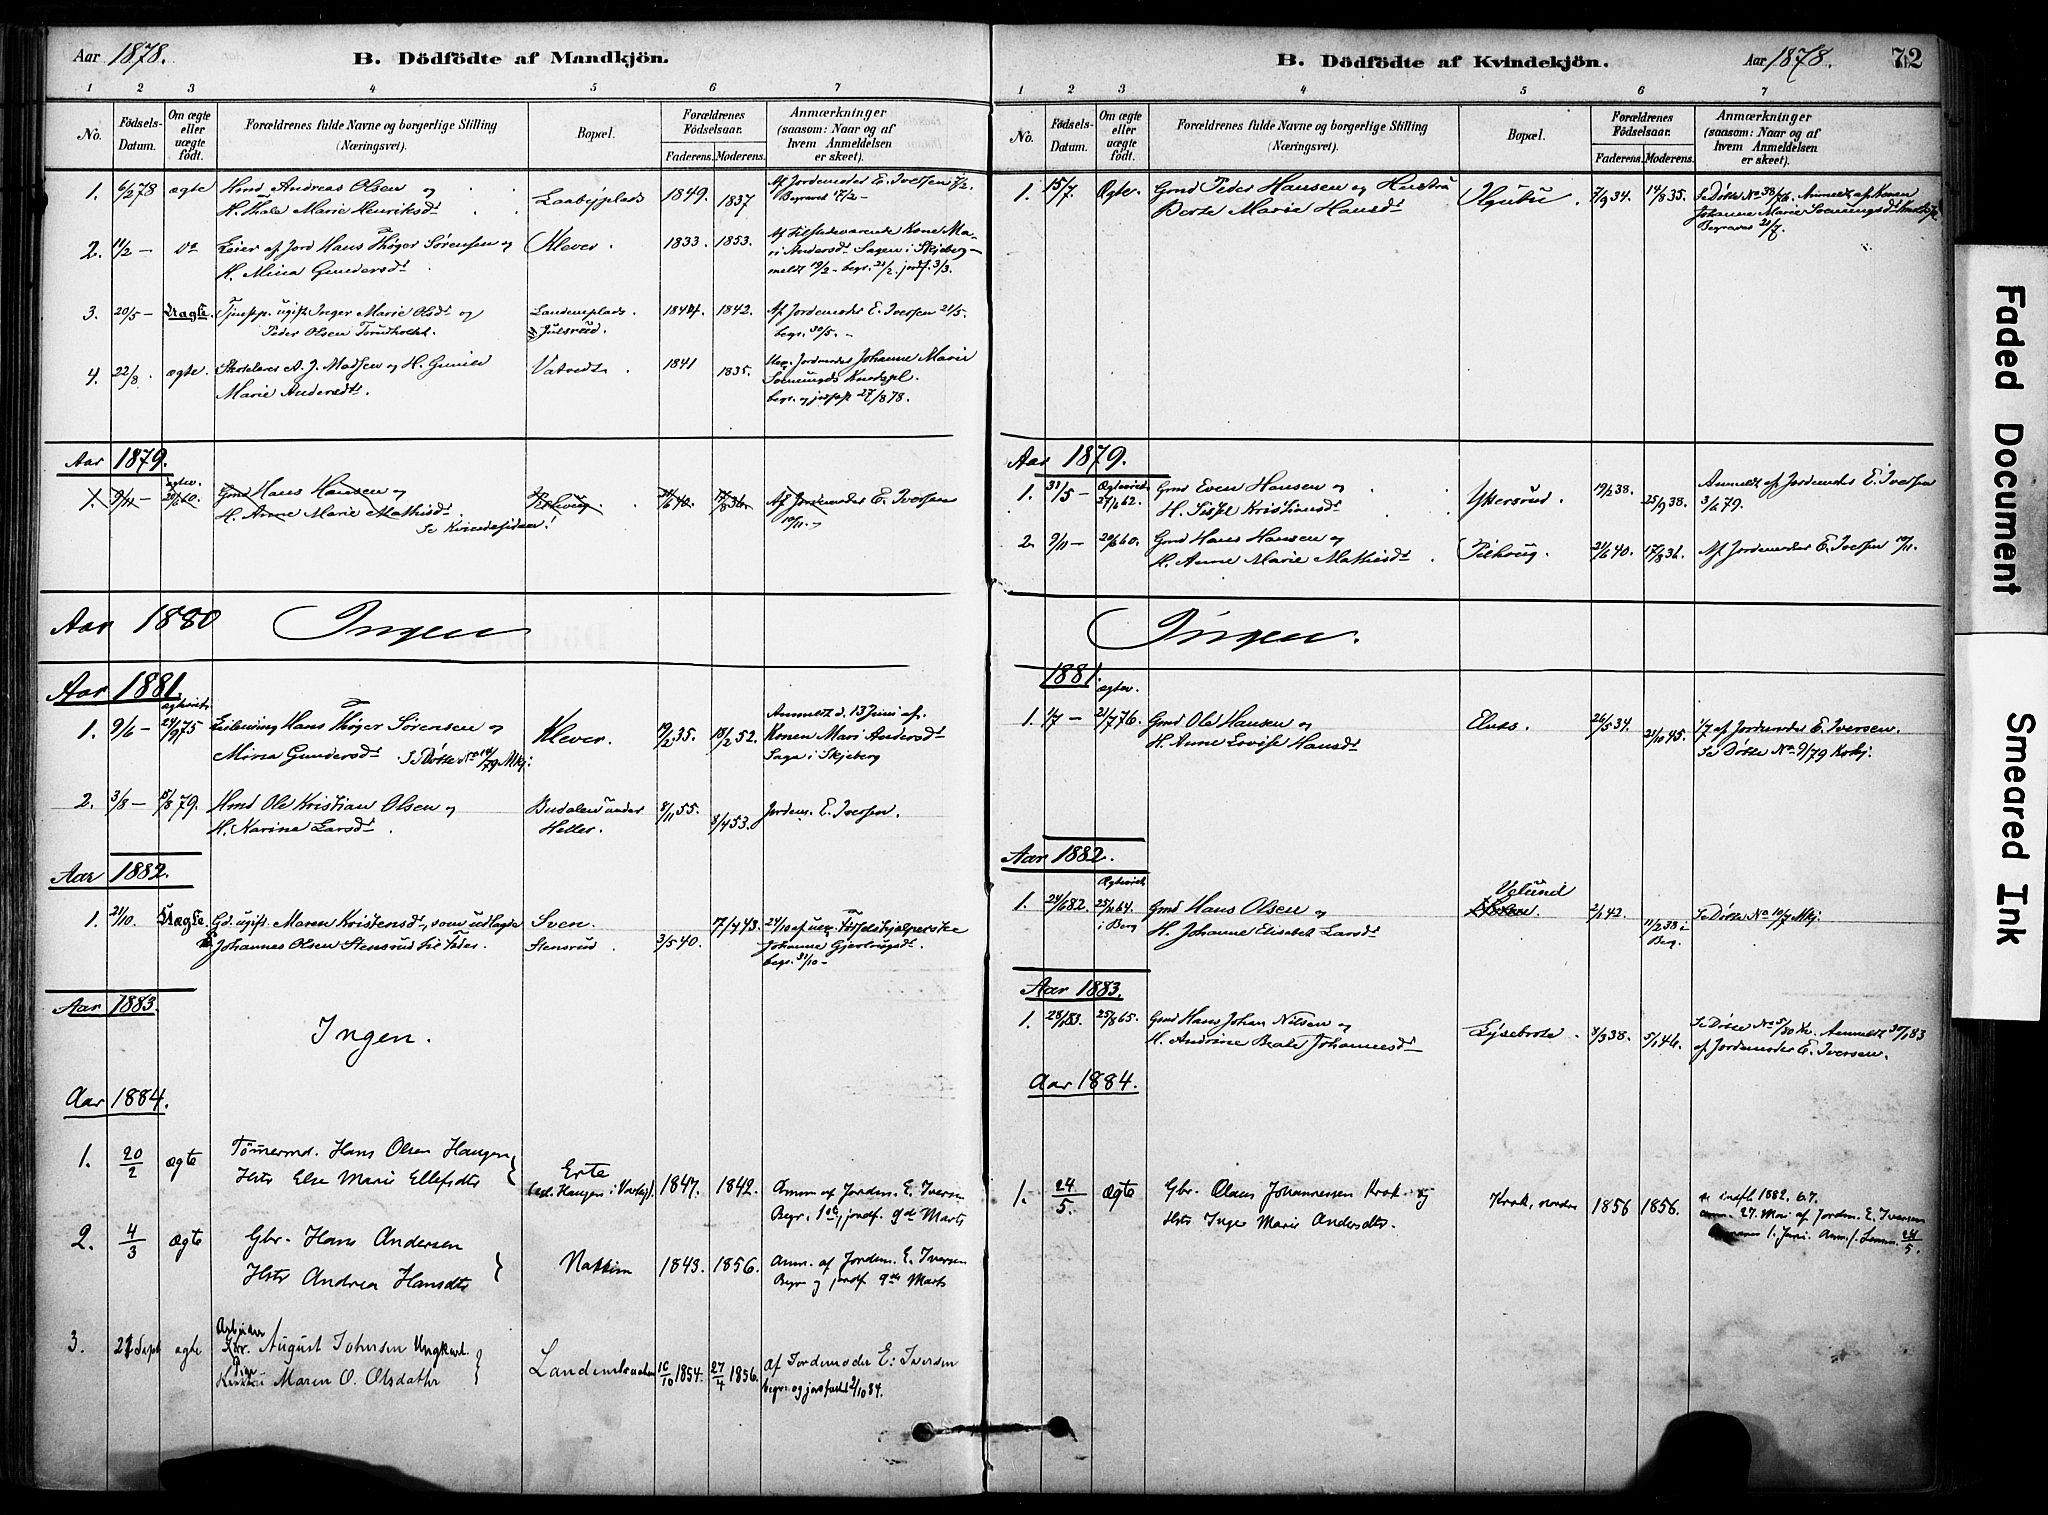 Aar 1878.
B. Dödfödte af Mandkjön.
1 2 3 4 5 6 7
No.
Födsels-Datum.
Om ægte eller uægte födt.
Forældrenes fulde Navne og borgerlige Stilling (Næringsvei).
Bopæl.
Forældrenes Födselsaar.
Faderens. Moderens.
Anmærkninger (saasom: Naar og af hvem Anmeldelsen er skeet).
1. 6/2 78 ægte Hmd Andreas Olsen og 1849. 1837 Af Jordemoder E. Iversen 7/2.
H. Thala Marie Henriksdt Laabyplads Begravet 17/2 –
2. 11/2 – do Leier af Jord Hans Thøger Sørensen og Klever. 1833. 1853. Af Tilstedeværende Kone Ma-
H. Mina Gundersdt ri Andersdt Sagen i Skjeberg –
meldt 19/2 – begr. 21/2. jordf. 3/3.
3. 20/5 – Uægte. Tjenestp. ugift Inger Marie Olsdt og Landemplads. 1844. 1842. Af Jordemoder E. Iversen 21/5.
Peder Olsen Julsrud. begr. 30/5. –
4. 22/8. ægte. A. J. Madsen og H. Gunild Vatvedt 1841 1835. Jordmoder Johanne Marie
Marie Andersdt. begr. og jordfæst 27/8 78.
Aar 1879.
1. 9/11 – 20/6 60. Gmd Hans Hansen og 21/6 40. 17/8 36. Af Jordemoder E. Iversen
H. Anne Marie Mathisdt. Se Kvindesiden! 10/11. –
Aar 1880 Ingen
Aar 1881.
1. 9/6 – 24/9 75 Hans Thøger Sørensen og Klever. 19/2 35. 18/2 52. Anmeldt d. 13 Juni af
Mina Gundersdt Se Døbte No 10/79 Mkj: Konen Mari Andersdt
Saga i Skjeberg
2. 3/8 – 5/8 79. Hmd Ole Kristian Olsen og Budalen under 8/11 55. 8/4 53. Jordem. E. Iversen.
H. Karine Larsdt. Heller.
Aar 1882.
1. 21/10. Uægte Gd. ugift Maren Kristensdt, som udlagde Sven. 7/4 43. 24/10 af
Johannes Olsen Stensrud til Fader. Stensrud 3/5 40. Johanne Gjertrugsdt.
begr. 31/10 –
Aar 1883.
Ingen.
Aar 1884.
1. 20/2 ægte Tömmermd. Hans Olsen Haugen Erte 1847. 1842. Anm af Jordem. E. Iversen
Hstr Else Marie Ellefsdtr Begr. 1ste, jordf. 9de Marts
2. 4/3 ægte Gbr. Hans Andersen Nakkim 1843. 1856. Anm. af Jordem. E. Iversen
Hstr Andrea Hansdtr Begr og jordf 9de Marts
3. 21 Sept ægte Arbeider August Johnsen Ungkarl. 10/10 1854. 27/4 1856. Af Jordemoder E. Iversen
Pige Maren O. Olsdatter begr. og jordfæstet 2/10 84.
B. Dödfödte af Kvindekjön.
Aar 1878. 72
1 2 3 4 5 6 7
No.
Födsels-Datum.
Om ægte eller uægte födt.
Forældrenes fulde Navne og borgerlige Stilling (Næringsvei).
Bopæl.
Forældrenes Födselsaar.
Faderens. Moderens.
Anmærkninger (saasom: Naar og af hvem Anmeldelsen er skeet).
1. 15/7. Ægte. Gmd Peder Hansen og Hustru 7/9 34. 14/8 35. Se Døbte No 38/76. Anmeldt af Konen
Berte Marie Hansdt Johanne Marie
Begravet 21/7.
Aar 1879.
1. 31/5 – 27/6 62. Gmd Even Hansen og Ykersrud. 19/2 38. 25/9 38. Anmeldt af Jordemoder E. Iversen
H. Kristiansdt 3/6 79.
2. 9/11 – 20/6 60. Gmd Hans Hansen og 21/6 40. 17/8 36. Af Jordemoder E. Iversen 10/11.
H. Anne Marie Mathisdt
Ingen.
1881.
1. 1/7 – 21/7 76. Gmd Ole Hansen og 26/5 34. 21/10 45. 1/7 af Jordemoder E. Iversen.
H. Anne Lovise Hansdt Se Døbte No 9/79 Kvkj.
Aar 1882.
1. 24/6 82. 25/6 64. i Berg Gmd Hans Olsen og Velund 2/1 42. 11/2 38 i Berg. Se Døbte No 10/7 Mkj
H. Johanne Elisabet Larsdt
Aar 1883.
1. 28/1 83. 25/8 65. Gmd Hans Johan Nilsen og 8/3 38. 5/1 46. Se Døbte No 5/80 Kv. Anmeldt 30/1 83
H. Andrine Beate Johannesdt af Jordemoder E. Iversen.
Aar 1884.
1. 24/5. ægte Gbr. Olaus Johannessen Krok. og Krok, nordre 1856 1856. indft. 1882. 67.
Hstr Inger Marie Andersdtr. anm. 27. Mai af Jordem. E. Iversen
1. Juni.